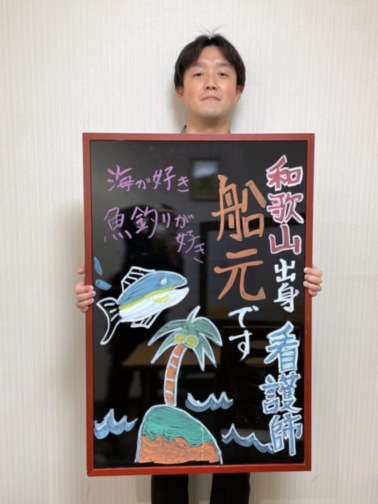 和歌山出身 看護師
船元です
海が好き
魚釣りが
好き